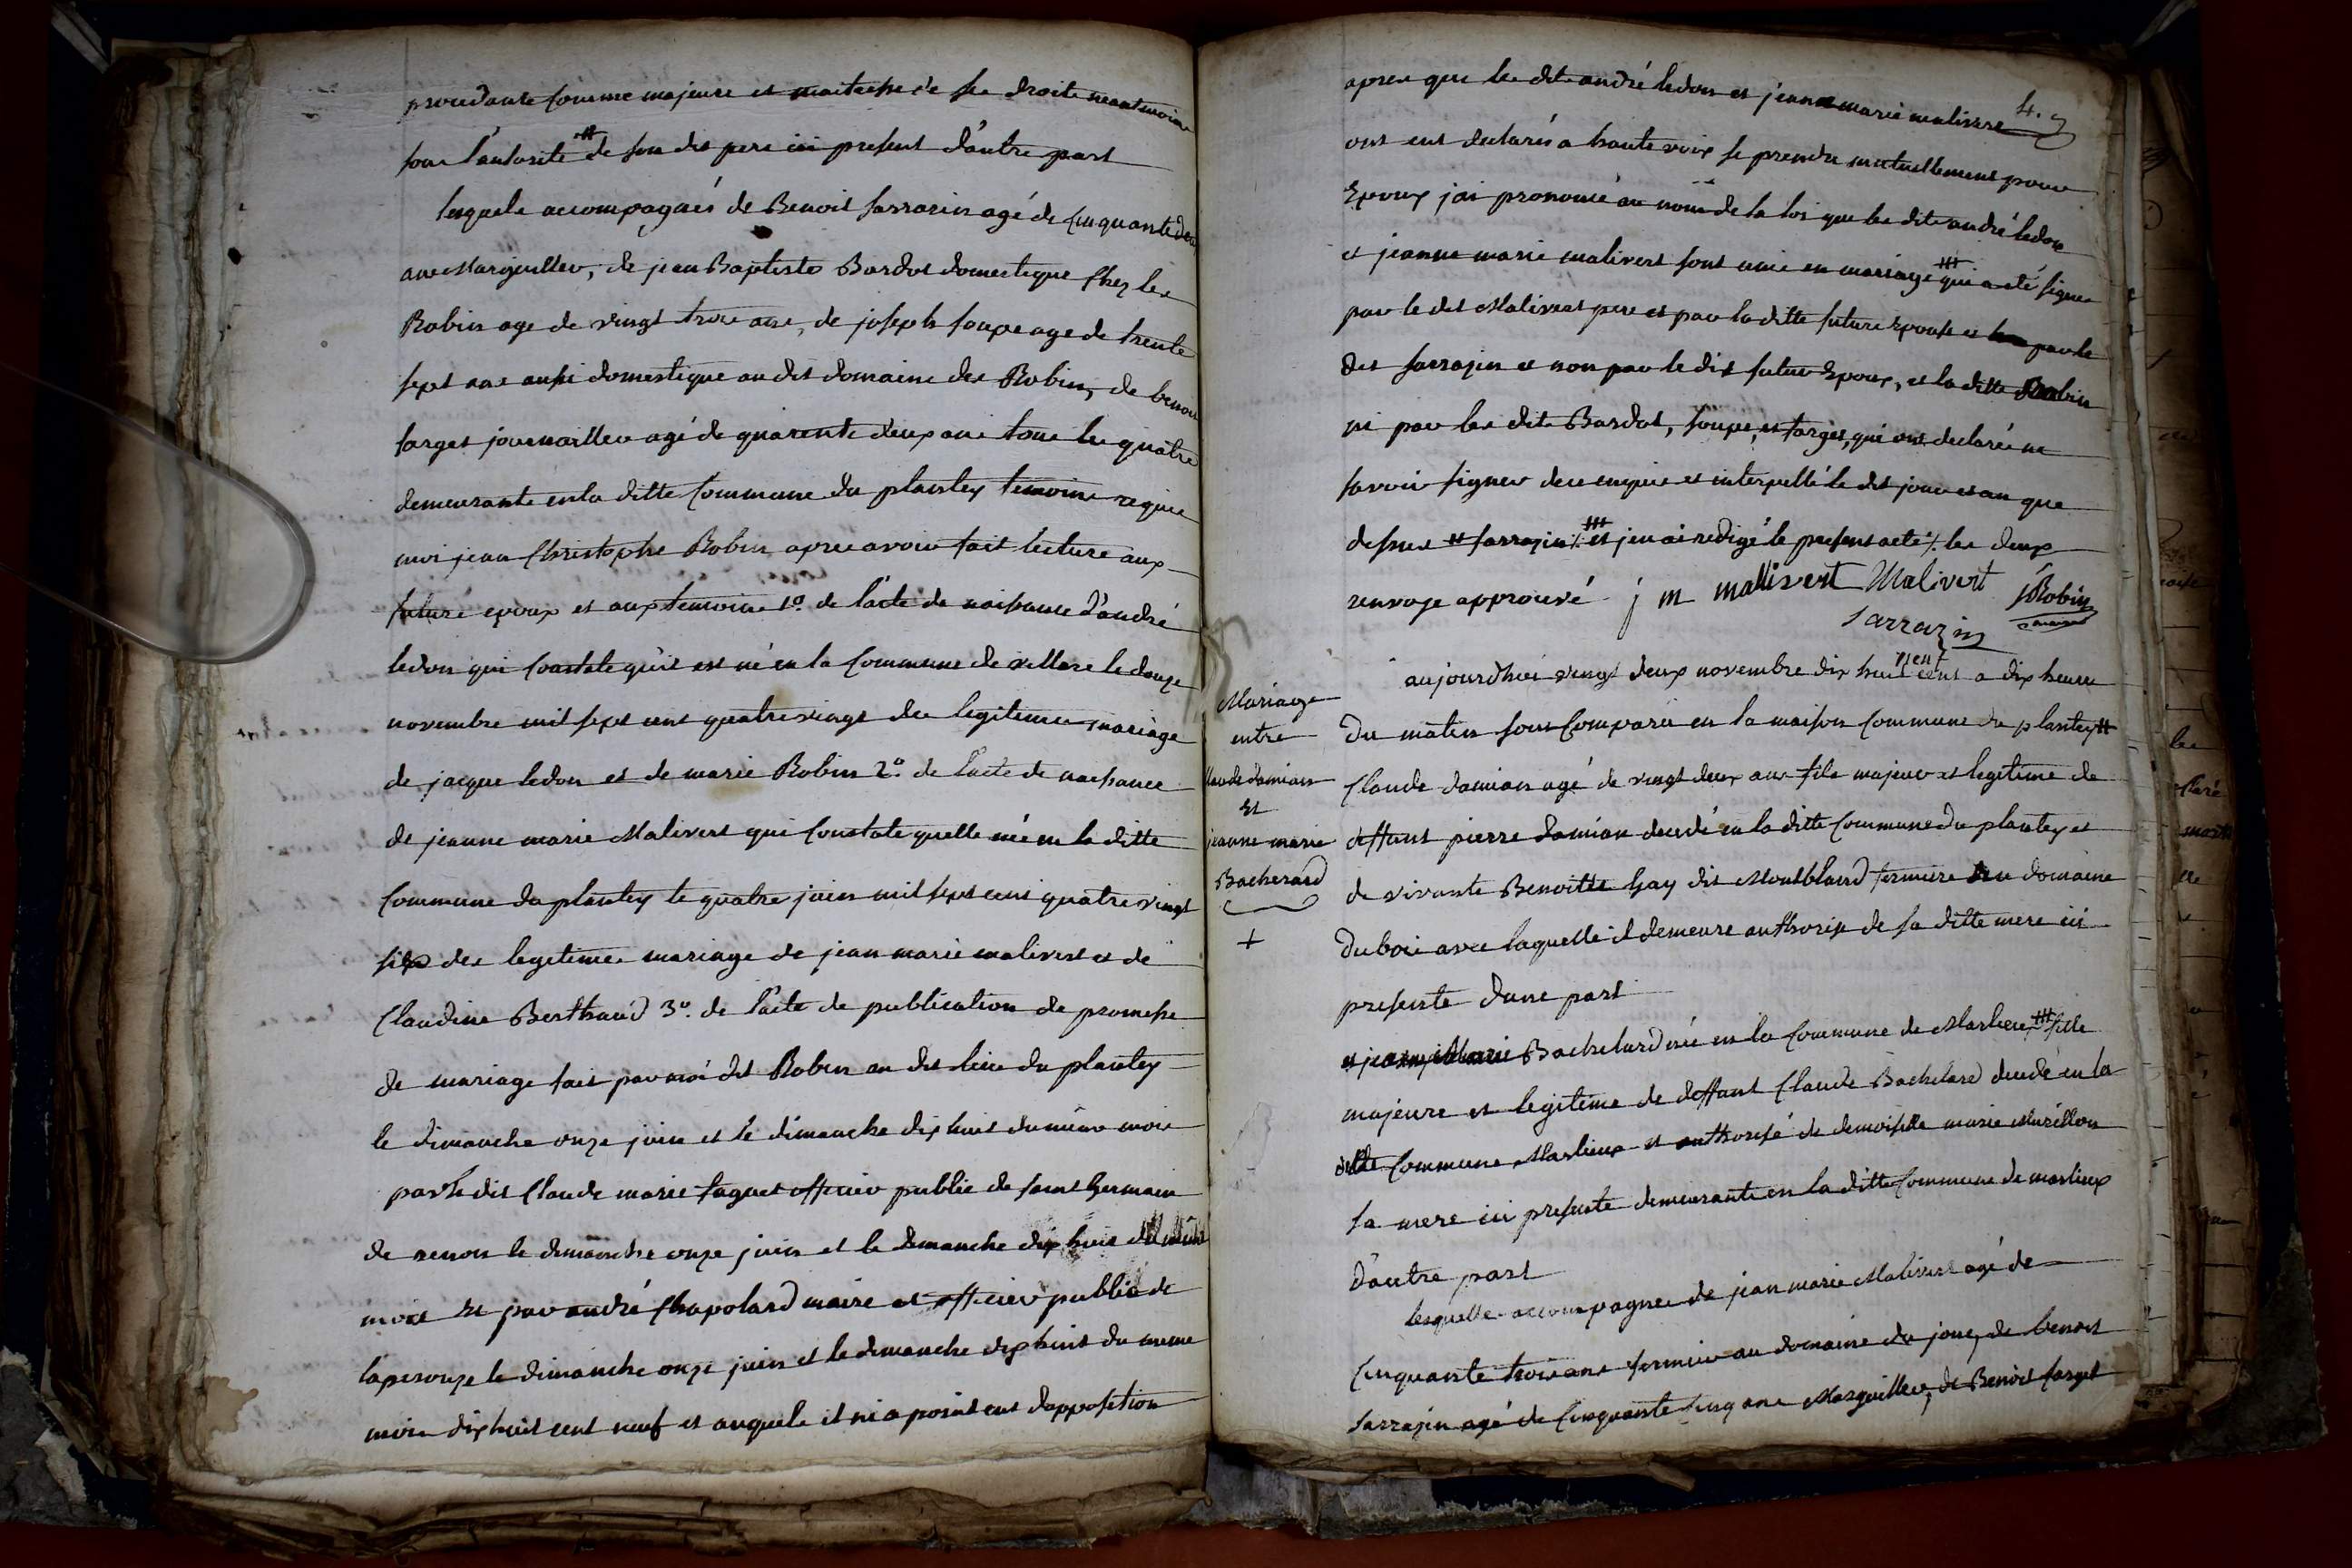 procedante comme majeure et maitresse de ses droits neantmoins
sous l'autorité # de son dit pere ici present d'autre part
lesquels accompagnés de Benoit sarrasin agé de cinquante deux
ans Marguiller, de jean Baptiste Bardot domestique chez les
Robin age de vingt trois ans, de joseph soupe age de trente
sept ans aussi domestique au dit domaine des Robin, de benoit
farget journaillier agé de quarente deux ans tous les quatre
demeurants en la ditte commune du plantey temoins requis
moi jean christophe Robin apres avoir fait lecture aux
future epoux et aux temoins 1º. de l'acte de naissance d'andré
ledon qui constate qu'il est né en la commune de villars le douze
novembre mil sept cent quatre vingt des legitimes mariage
de jacque ledon et de marie Robin 2º. de l'acte de naissance
de jeanne marie Malivert qui constate quelle née en la ditte
commune du plantey le quatre juin mil sept cent quatre vingt
six des legitimes mariage de jean marie malivert et de
claudine Berthaud 3º. de l'acte de publication de promesse
de mariage fait par moi dit Robin au dit lieu du plantey
le dimanche onze juin et le dimanche dix huit du même mois
par le dit claude marie faguet officier public de saint germain
de renon le dimanche onze juin et le dimanche dix huit du même
mois et par andré chapolard maire et officier public de
lapeirouze le dimanche onze juin et le dimanche dix huit du meme
mois dix huit cent neuf et auquels il ni a point eut d'apposition
4.
apres que les dits andré ledon et jeanne marie malivere
ont eut declarés a haute voix se prendre mutuellement pour
Epoux jai prononcé au nom de la loi que les dits andré ledon
et jeanne marie malivert sont unis en mariage ### qui a eté signée
par le dit Malivert pere et par la ditte future Epouse et par le
dit sarrazin et non par le dit futur Epoux, et la ditte Robin
ni par les dits Bardot, soupe, et farget, qui ont declarés ne
savoir signer de ce enquis et interpellé le dit jour et an que
dessus # sarrazin /. ### et jen ai redigé le present acte /. les deux
renvoye approuvé j m mallivert Malivert JRobin
sarrazin
Mariage
entre
claude damian
Et
jeanne marie
Bachelard
+
aujourdhui vingt deux novembre dix huit cent neuf a dix heures
du matin sont comparu en la maison commune du plantey #
claude damian agé de vingt deux ans fils majeur et legitime de
deffunt pierre damian decedé en la ditte commune du plantey et
de vivante Benoitte Gay dit Montbland fermiere du domaine
dubois avec laquelle il demeure authorisé de sa ditte mere ici
presente d'une part
et jeanne Marie Bachelard née en la commune de Marlieux ### fille
majeure et legitime de deffunt claude Bachelard decedé en la
ditte commune Marlieux et authorisé de demoiselle marie Murillon
sa mere ici presente demeurante en la ditte commune de marlieux
d'autre part
lesquelle accompagnee de jean marie Malivert agé de
cinquante trois ans fermier au domaine du joug, de benoit
sarrazin agé de cinquante cinq ans Marguiller, de Benoit farget